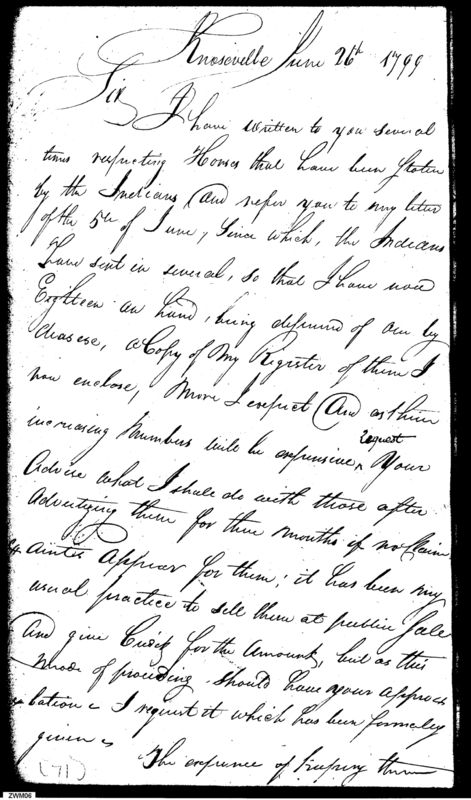 Knoxville June 26th 1799
Sir
I have written to you several
times respecting Horses that have been stolen
by the Indians, And refer you to my letter
of the 5th of June, Since which, the Indians
have sent in several, so that I have now
Eighteen on hand, being deprived of one by
disease, a Copy of My Register of them I
now enclose, More I expect And as their
request
increasing Numbers will be expensive ^ Your
Advice what I shall do with those after
Advertizing them for three months if no Claim
aints Appear for them; it has been my
usual practice to sell them at public Sale
And give Credit for the Amount, but as this
mode of proceeding should have your approv
bation I request it which has been formerly
given
The expence of keeping them
(71)
ZWM06